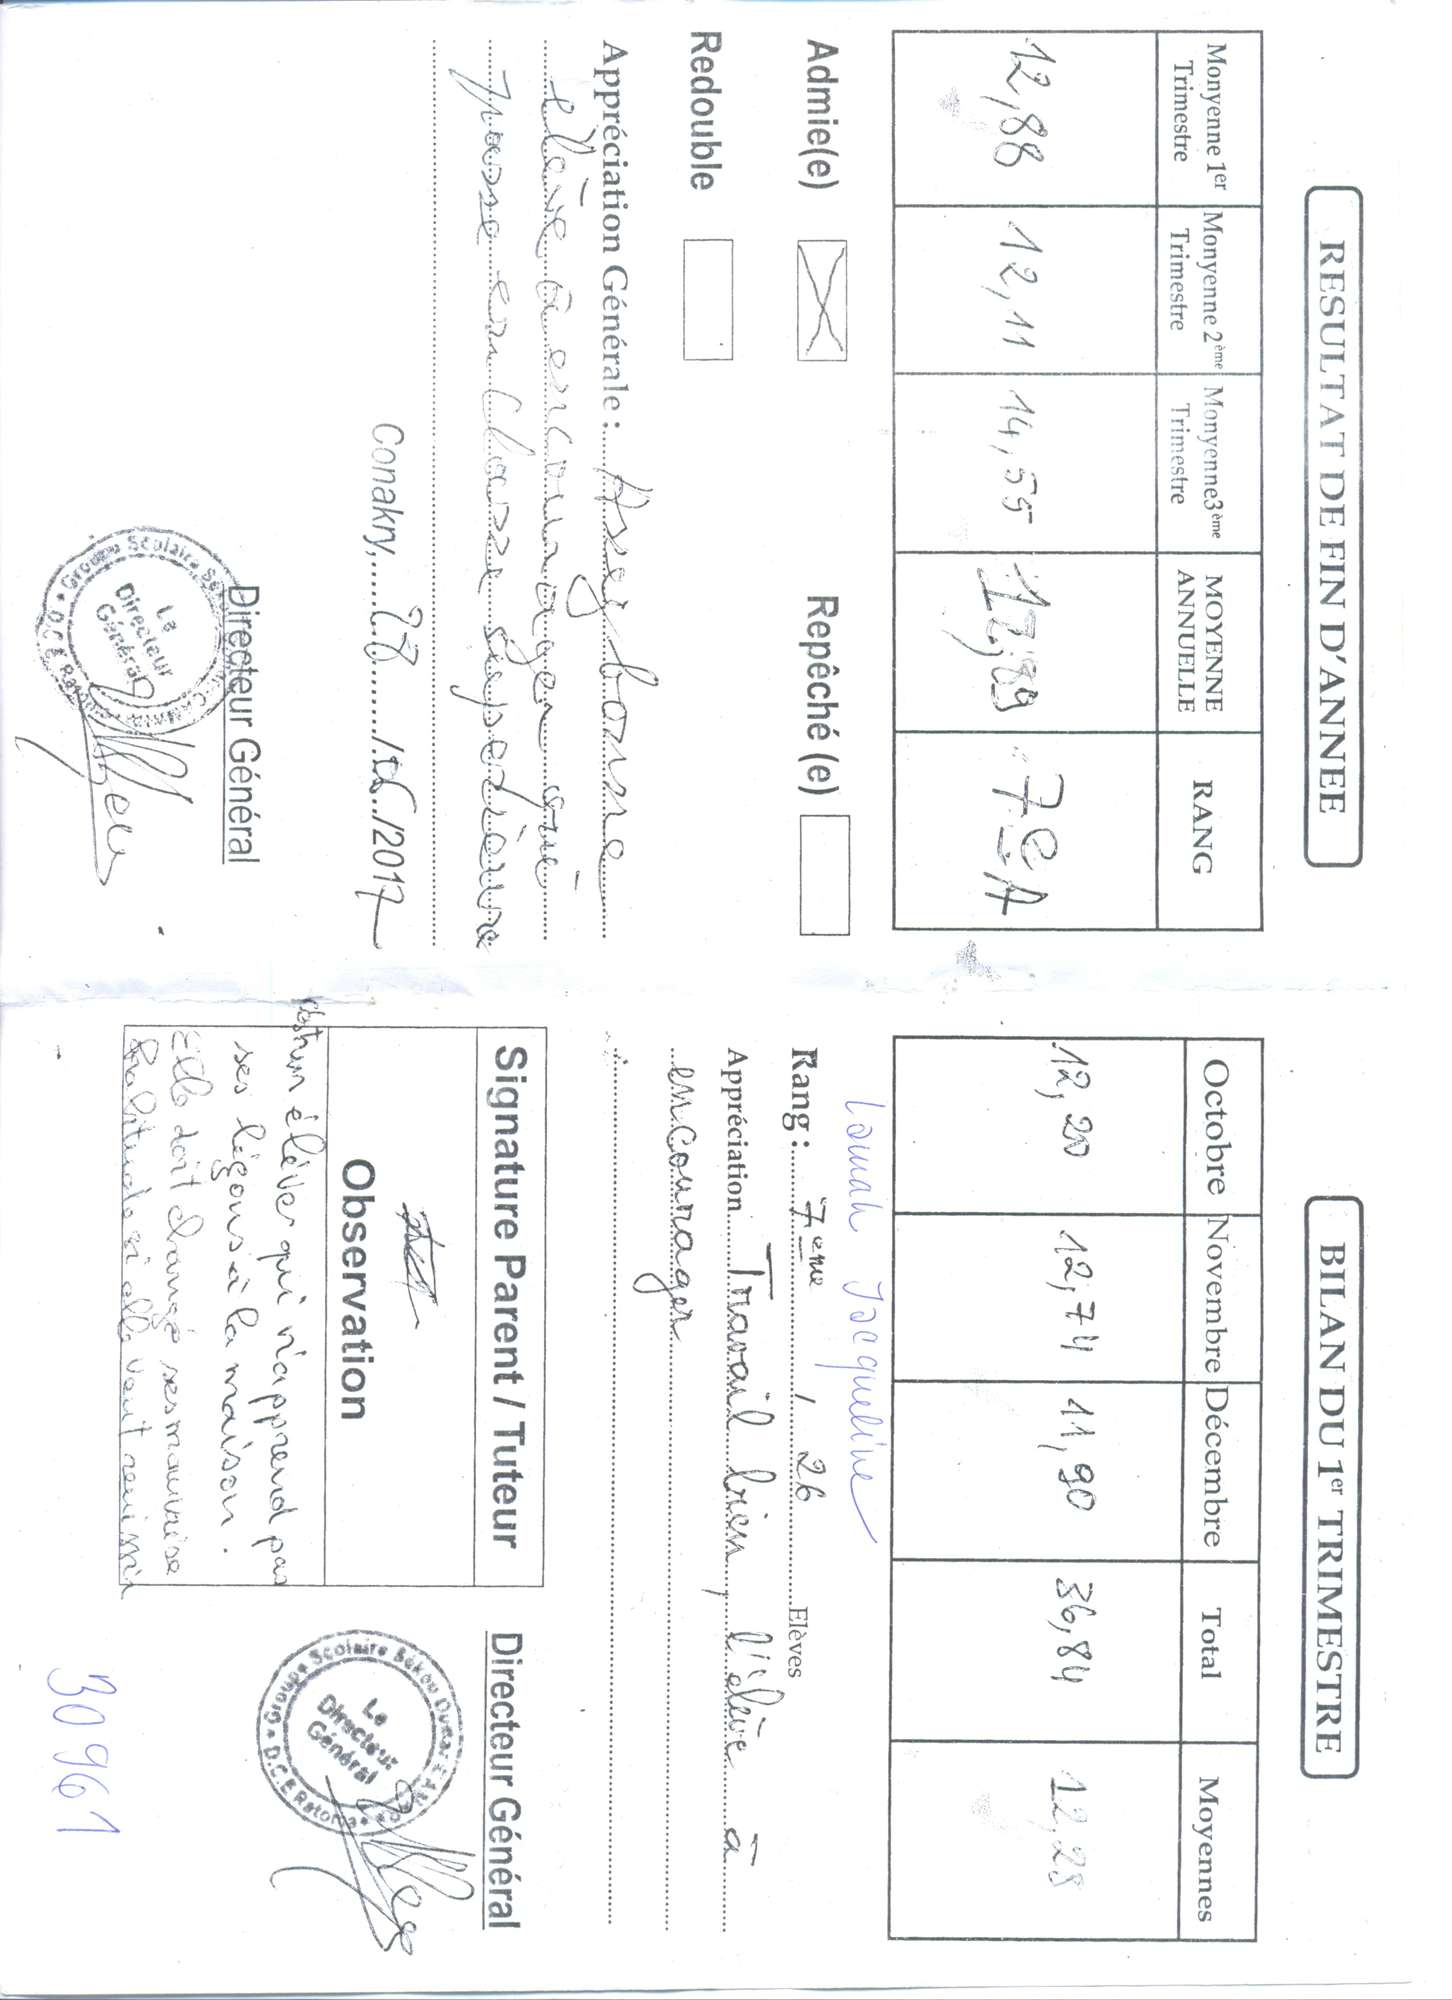 RESULTAT DE FIN D'ANNEE
Monyenne 1er Trimestre
Monyenne 2ème Trimestre
Monyenne3ème Trimestre
MOYENNE ANNUELLE
RANG
12,88
12,11
14,55
7e A
Admie(e)
Repêché (e)
Redouble
Appréciation Générale : Assez bonne
élève à encourager
passe en classe supérieure
Conakry, 28 / 06 /2017
Directeur Général
Groupe Scolaire
Le Directeur Général
BILAN DU 1er TRIMESTRE
Octobre
Novembre
Décembre
Total
Moyennes
12,20
12,74
11,90
36,84
12,28
Lamah Jacqueline
Rang : 7ème / 26 Elèves
Appréciation Travail bien, l'élève à
encourager
Signature Parent / Tuteur
Directeur Général
Observation
élève qui n'apprend pas
ses leçons à la maison.
Elle doit changé ses mauvaise
habitude si elle veut réussir
Groupe Scolaire Sékou
D.C.E Ratoma
Le Directeur Général
30961